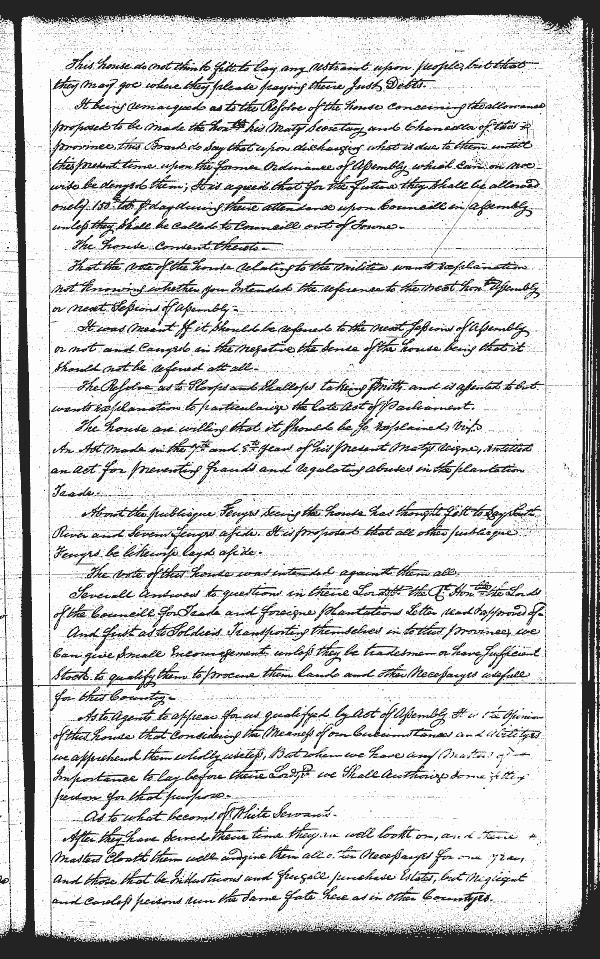 This house do not think fitt to lay any restraint upon people, but that
they may goe where they please paying theire Just Debts.
It being remarqued as to the Resolve of the house concerning the allowance
proposed to be made the hon^ble his Maty Secretary and Chancellor of this
province, this Board do say that upon discharging what is due to them untill
this present time upon the former Ordinance of Assembly which can on noe
wise be denyed them; It is agreed that for the future they shall be allowed
onely 150^lb tob p day during theire attendance upon Councill in Assembly
unless they shall be called to Councill out of Towne.
The house Consent thereto
That the vote of the house relating to the militia wants explanation
not knowing whether you Intended the reference to the next hon^ble Assembly
or next Sessions of Assembly
It was meant If it should be referred to the next Sessions of Assembly
or not and Carryed in the negative the Sense of the house being that it
should not be referred att all.
The Resolve as to Sloops and Shallops taking and is assented to but
wants explanation to particularize the late Act of Parliament.
The house are willing that it should be so explained vizt
An Act made in the 7^th and 8^th year of his present Matys reigne, entitled
an act for preventing frauds and regulating abuses in the plantation
Trade.
About the publique Ferrys seeing the house has thought fitt to lay South
River and Severn Ferrys aside. It is proposed that all other publique
Ferrys be likewise layd aside.
The vote of this house was intended against them all.
Severall Answers to questions in theire Lordsps the R^t Hon^ble the Lords
of the Councill for Trade and foreigne plantations Letter read & approved of
And first as to Soldiers Transporting themselves in to this province, we
can give small Encouragement unless they be tradesmen or have sufficient
Stock to qualify them to procure them land and other Necessarys usefull
for this Country
As to Agents to appear for us qualifyed by Act of Assembly It is the Opinion
of this house that Considering the Meaness of our Circumstances and
we apprehend them wholly useless, But when we have any Matter of
Importance to lay before theire Lordsps we shall Authorize some fitting
person for that purpose.
As to what becoms of White Servants.
After they have served theire time they are well lookt on, and theire
Masters Cloath them well and give them all other Necessarys for one year,
and those that be Industrious and frugall purchase Estates, but Negligent
and careless persons run the same fate here as in other Countrys.